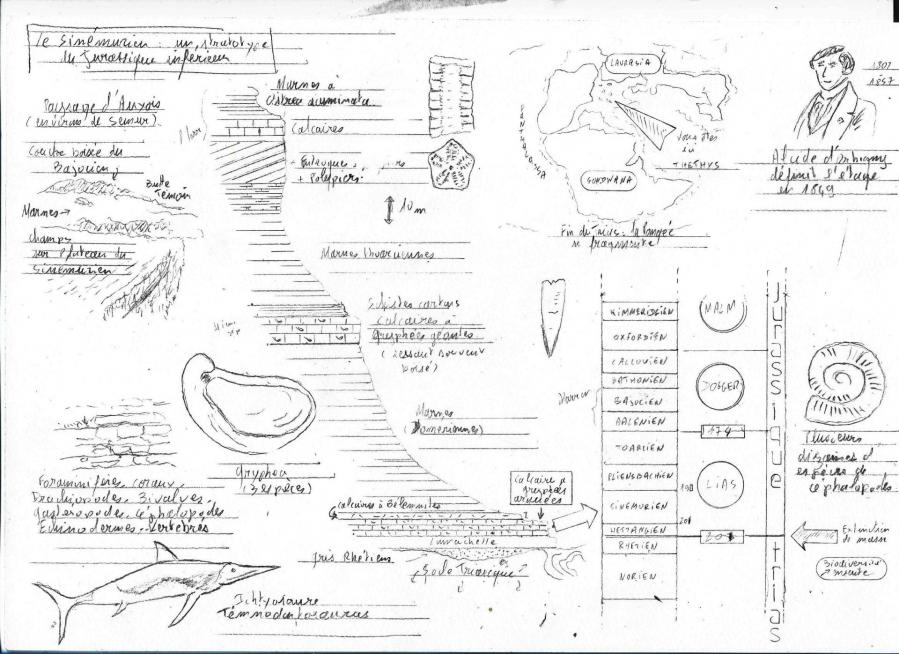 Le Sinémurien : un stratotype
du Jurassique inférieur
Paysage d'Auxois
(environs de Semur)
Marnes à
Ostrea acuminata
Calcaires
+ Entroques
+ Polypiers
10 m
Butte
Témoin
Marnes →
champs
sur plateau du
Sinémurien
Marnes Thoarciennes
Schistes cartons
Calcaires à
gryphées géantes
(ressaut souvent
boisé)
Marnes
(Domeriennes)
Gryphea
(3 espèces)
Foraminifères, coraux,
Brachiopodes, Bivalves,
gastéropodes, Céphalopodes
Echinodermes, Vertébrés
Calcaires à Bélemnites
Calcaire à
gryphées
arquées
Lumachelle
grès Rhétien
Socle Triasique ?
Ichtyosaure
Temnodontosaurus
LAURASIA
PANTHALASSA
Vous êtes
ici
THETHYS
GONDWANA
Fin du Trias : la Pangée
se fragmente
1802
1857
Alcide d'Orbigny
définit l'étage
en 1849
KIMMERIDGIEN
OXFORDIEN
CALLOVIEN
BATHONIEN
BAJOCIEN
AALENIEN
TOARCIEN
PLIENSBACHIEN
SINEMURIEN
HETTANGIEN
RHETIEN
NORIEN
MALM
DOGGER
174
LIAS
201
Jurassique
trias
Plusieurs
dizaines d'
espèces de
céphalopodes
Extinction
de masse
Biodiversité